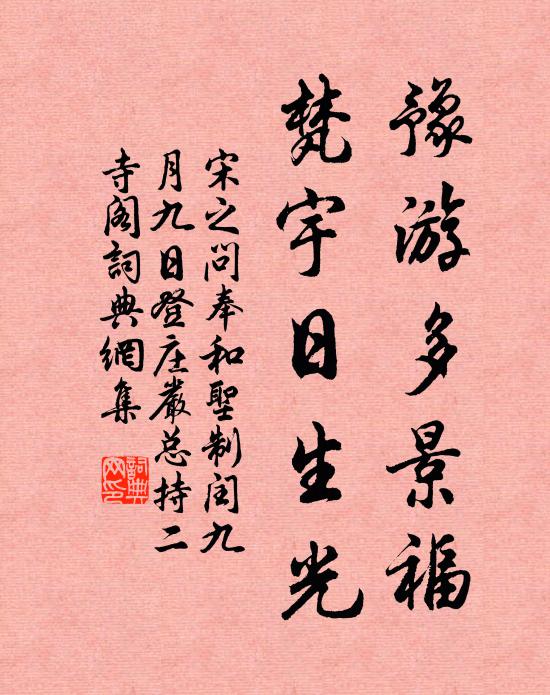 豫游多景福
梵宇日生光
宋之问奉和聖制闰九
月九日登庄嚴总持二
寺阁詞典網集
詞典网印